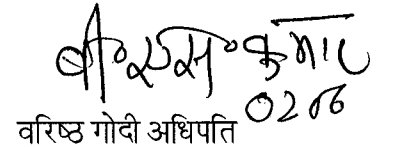 बी॰ एस॰ कुमार
वरिष्ठ गोदी अधिपति